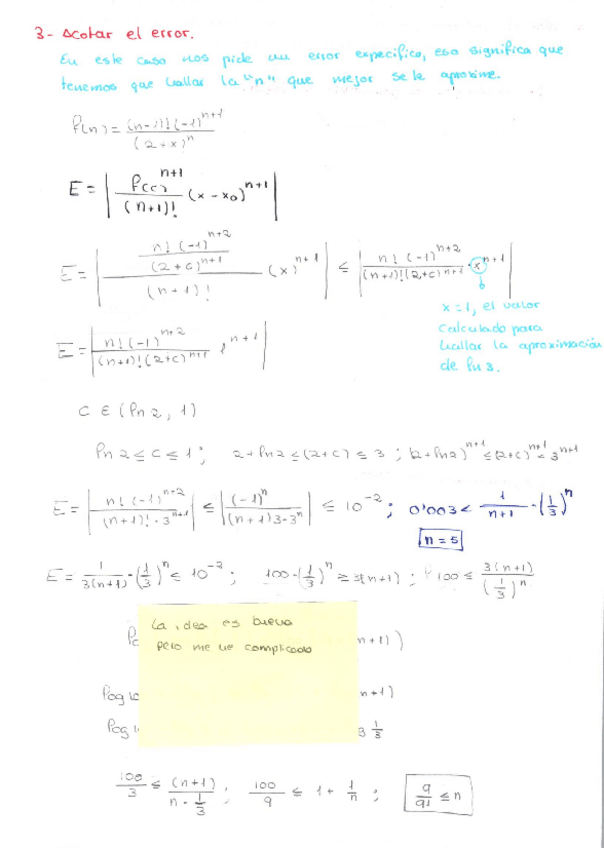 3- Acotar el error.
En este caso nos pide un error específico, eso significa que
tenemos que hallar la "n" que mejor se le aproxime.
f(n) = (n-1)! (-1)^n+1 / (2+x)^n
E = | f(c)^n+1 / (n+1)! (x - x0)^n+1 |
E = | n! (-1)^n+2 / (2+c)^n+1 / (n+1)! (x)^n+1 | ≤ | n! (-1)^n+2 / (n+1)! (2+c)^n+1 · x^n+1 |
x=1, el valor
calculado para
hallar la aproximación
de ln 3.
E = | n! (-1)^n+2 / (n+1)! (2+c)^n+1 · 1^n+1 |
C ∈ (ln 2, 1)
ln 2 ≤ c ≤ 1; 2+ln2 ≤ (2+c) ≤ 3; (2+ln2)^n+1 ≤ (2+c)^n+1 ≤ 3^n+1
E = | n! (-1)^n+2 / (n+1)! · 3^n+1 | ≤ | (-1)^n / (n+1) 3·3^n | ≤ 10^-2; 0'003 < 1 / n+1 · (1/3)^n
n = 5
E = 1 / 3(n+1) · (1/3)^n ≤ 10^-2; 100 · (1/3)^n ≥ 3(n+1); 100 ≤ 3(n+1) / (1/3)^n
La idea es buena
n+1))
pero me he complicado
log 10
n+1)
log 1
3 1/3
100/3 ≤ (n+1) / n · 1/3; 100/9 ≤ 1 + 1/n; 9/91 ≤ n